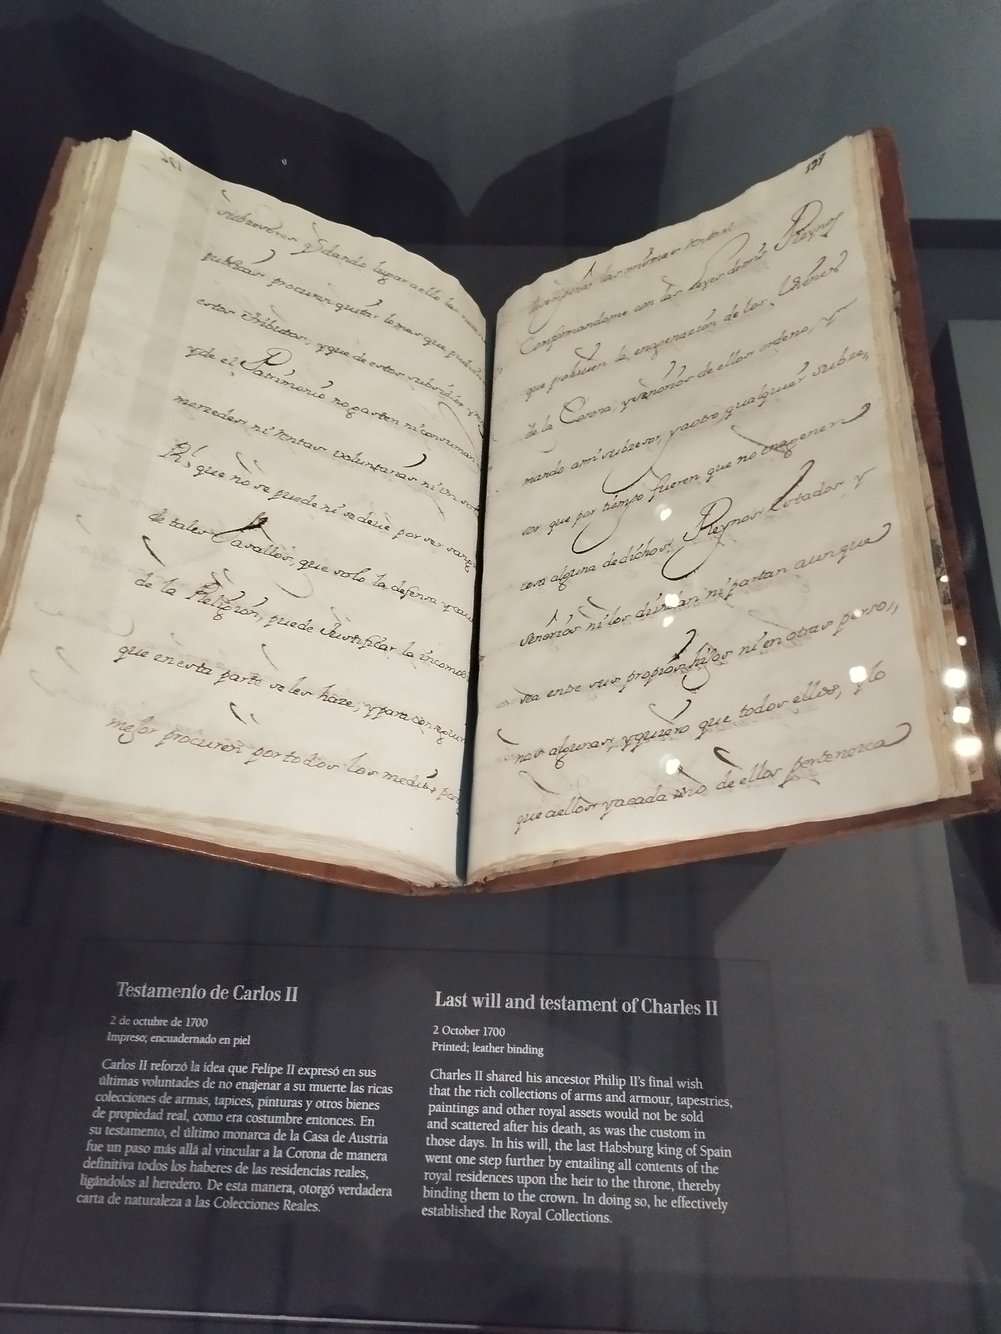 subresores q̃ dando lugar a ello las
publicas procuren quitar lo mas que pudie
estos tributos, y que de estos subsidios, y
y de el Patrimonio no gasten ni consuman
mercedes ni rentas voluntarias ni
que no se puede ni se deue por ser sangre
de tales Vasallos, que solo la defensa, y
de la Religion, puede Justificar la incomo
que en esta parte se les haze, y para conseguir
mejor procuren por todos los medios, pa
129
las mismas
Conformandome con las leyes de mis Reynos
que prohiuen la enagenación de los bienes
de la Corona, y señorios de ellos ordeno, y
mando a mi subzesor, y a otro qualquier subze„
sor que por tiempo fueren, que no enagenen
cosa alguna de dichos Reynos Estados, y
señorios ni los diuidan ni partan aunque
sea entre sus propios hijos ni en otras perso„
nas algunas y quiero que todos ellos, y lo
que a ellos y a cada uno de ellos pertenezca
Testamento de Carlos II
2 de octubre de 1700
Impreso; encuadernado en piel
Carlos II reforzó la idea que Felipe II expresó en sus
últimas voluntades de no enajenar a su muerte las ricas
colecciones de armas, tapices, pinturas y otros bienes
de propiedad real, como era costumbre entonces. En
su testamento, el último monarca de la Casa de Austria
fue un paso más allá al vincular a la Corona de manera
definitiva todos los haberes de las residencias reales,
ligándolos al heredero. De esta manera, otorgó verdadera
carta de naturaleza a las Colecciones Reales.
Last will and testament of Charles II
2 October 1700
Printed; leather binding
Charles II shared his ancestor Philip II's final wish
that the rich collections of arms and armour, tapestries,
paintings and other royal assets would not be sold
and scattered after his death, as was the custom in
those days. In his will, the last Habsburg king of Spain
went one step further by entailing all contents of the
royal residences upon the heir to the throne, thereby
binding them to the crown. In doing so, he effectively
established the Royal Collections.